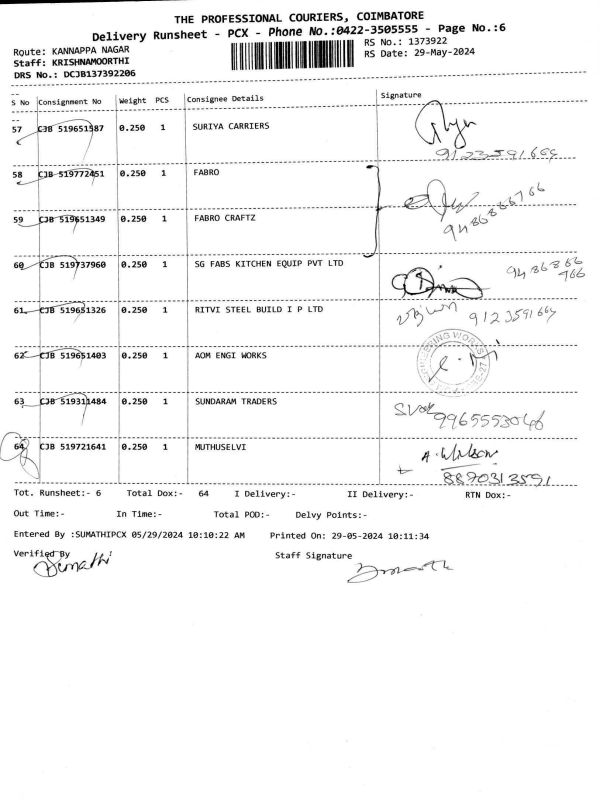 THE PROFESSIONAL COURIERS, COIMBATORE
Delivery Runsheet - PCX - Phone No.:0422-3505555 - Page No.:6
Route: KANNAPPA NAGAR
RS No.: 1373922
Staff: KRISHNAMOORTHI
RS Date: 29-May-2024
DRS No.: DCJB137392206
S No Consignment No Weight PCS Consignee Details Signature
57 CJB 519651587 0.250 1 SURIYA CARRIERS
9123591664
58 CJB 519772451 0.250 1 FABRO
9486866766
59 CJB 519651349 0.250 1 FABRO CRAFTZ
60 CJB 519737960 0.250 1 SG FABS KITCHEN EQUIP PVT LTD 9486866
766
61 CJB 519651326 0.250 1 RITVI STEEL BUILD I P LTD 9123591664
62 CJB 519651403 0.250 1 AOM ENGI WORKS
63 CJB 519311484 0.250 1 SUNDARAM TRADERS
64 CJB 519721641 0.250 1 MUTHUSELVI A. Wilson
8890313591
Tot. Runsheet:- 6 Total Dox:- 64 I Delivery:- II Delivery:- RTN Dox:-
Out Time:- In Time:- Total POD:- Delvy Points:-
Entered By :SUMATHIPCX 05/29/2024 10:10:22 AM Printed On: 29-05-2024 10:11:34
Verified By Staff Signature
Sumathi